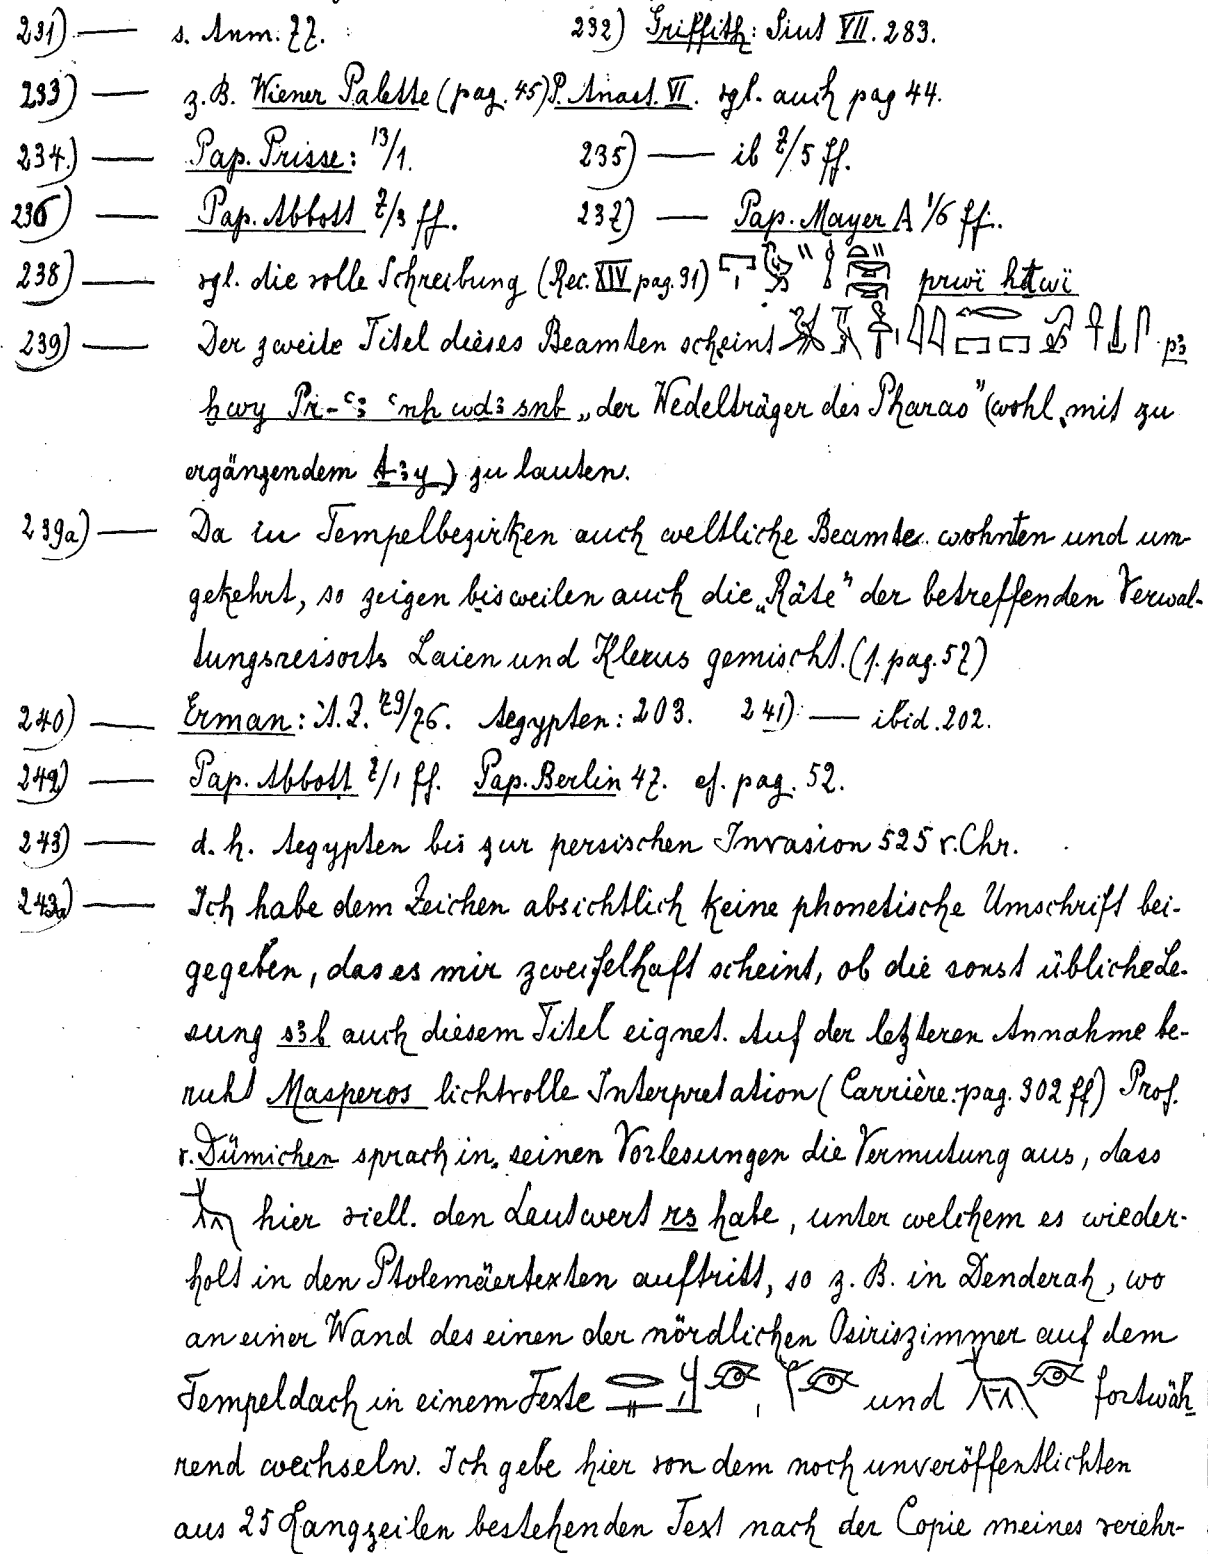 231) — s. Anm. 77. 232) Griffith: Siut VII. 283.
233) — z. B. Wiener Palette (pag. 45) P. Anast. VI. vgl. auch pag 44.
234.) — Pap. Prisse: 13/1. 235) — ib 7/5 ff.
236) — Pap. Abbott 7/3 ff. 237) — Pap. Mayer A 1/6 ff.
238) — vgl. die volle Schreibung (Rec. XIV pag. 31) prwï ḥḏwï
239) — Der zweite Titel dieses Beamten scheint p3
ḫwy Pr-ꜥ3 ꜥnḫ wd3 snb „der Wedelträger des Pharao" (wohl mit zu
ergänzendem t3y) zu lauten.
239a) — Da in Tempelbezirken auch weltliche Beamte wohnten und um-
gekehrt, so zeigen bisweilen auch die „Räte" der betreffenden Verwal-
tungsressorts Laien und Klerus gemischt. (f. pag. 57)
240) — Erman: Ä. Z. 79/76. Aegypten: 203. 241) — ibid. 202.
242) — Pap. Abbott 7/1 ff. Pap. Berlin 47. cf. pag. 52.
243) — d. h. Aegypten bis zur persischen Invasion 525 v. Chr.
243a) — Ich habe dem Zeichen absichtlich keine phonetische Umschrift bei-
gegeben, da es mir zweifelhaft scheint, ob die sonst übliche Le-
sung s3b auch diesem Titel eignet. Auf der letzteren Annahme be-
ruht Masperos lichtvolle Interpretation (Carrière: pag. 302 ff) Prof.
v. Dümichen sprach in seinen Vorlesungen die Vermutung aus, dass
hier viell. den Lautwert rs habe, unter welchem es wieder-
holt in den Ptolemäertexten auftritt, so z. B. in Denderah, wo
an einer Wand des einen der nördlichen Osiriszimmer auf dem
Tempeldach in einem Texte und fortwäh
rend wechseln. Ich gebe hier von dem noch unveröffentlichten
aus 25 Langzeilen bestehenden Text nach der Copie meines verehr-